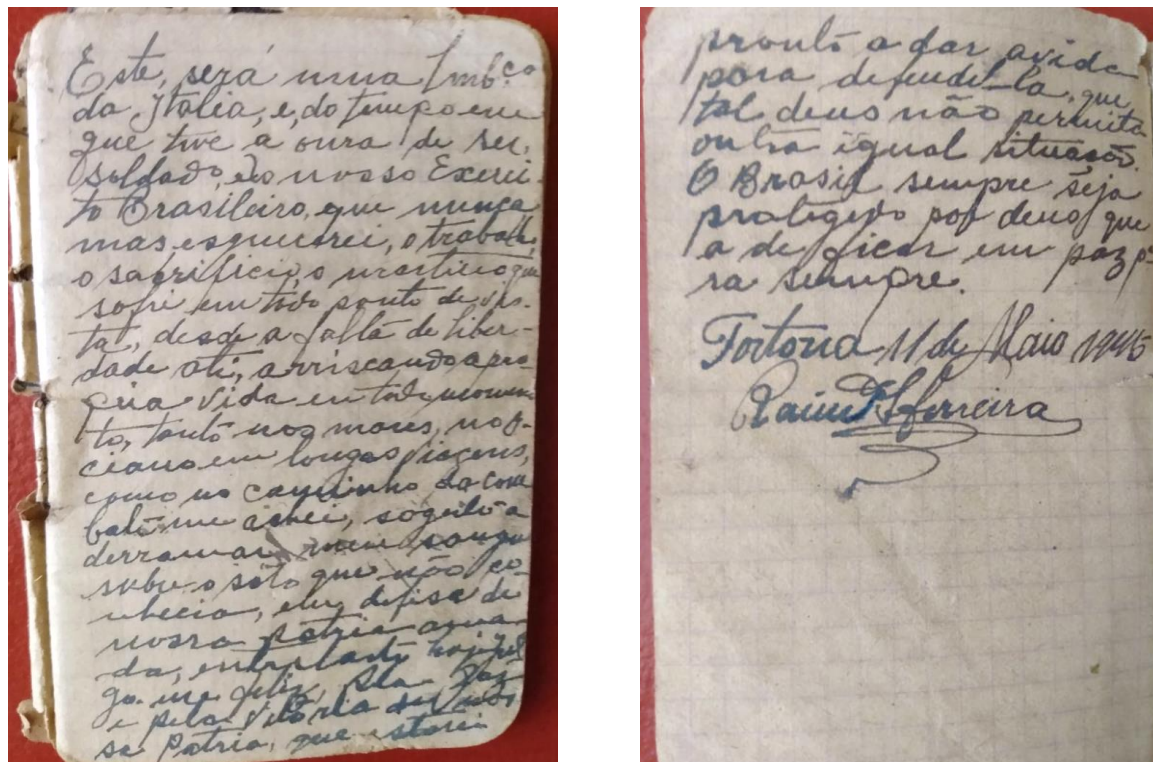 Este, será uma lmbça
da Italia, e, do tempo em
que tive a oura de ser,
soldado, do nosso Exerci-
to Brasileiro, que nunca
mas esquicerei, o trabalho,
o sacrificio, o martirio que
sofri em todo ponto de vis-
ta, desde a falta de liber-
dade ati, arriscando a pro-
pria vida em todo momen-
to, tanto nos mares, no o-
ciano em longas viagens,
como no caminho da com
bate me achei, sogeito a
derramar meu sangue
sobre o solo que não co-
nhecia, em defisa de
nossa pátria ama-
da, entretanto hoje jul
go-me feliz, pela Paz
e pela Vitória da nos
sa Patria, que estarei
pronto a dar a vida
para defende-la, que
tal deus não permita
outra igual situação.
O Brasil sempre seja
protegido por deus que
a de ficar em paz p-
ra sempre.
Tortona 11 de Maio 1945
Raim Ferreira